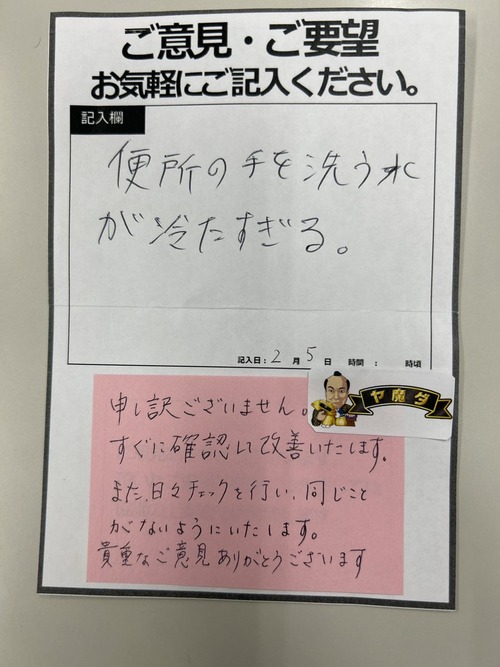 ご意見・ご要望
お気軽にご記入ください。
記入欄
便所の手を洗う水
が冷たすぎる。
記入日：2月5日 時間： 時頃
ヤ魔ダ
申し訳ございません。
すぐに確認して改善いたします。
また、日々チェックを行い、同じこと
がないようにいたします。
貴重なご意見ありがとうございます